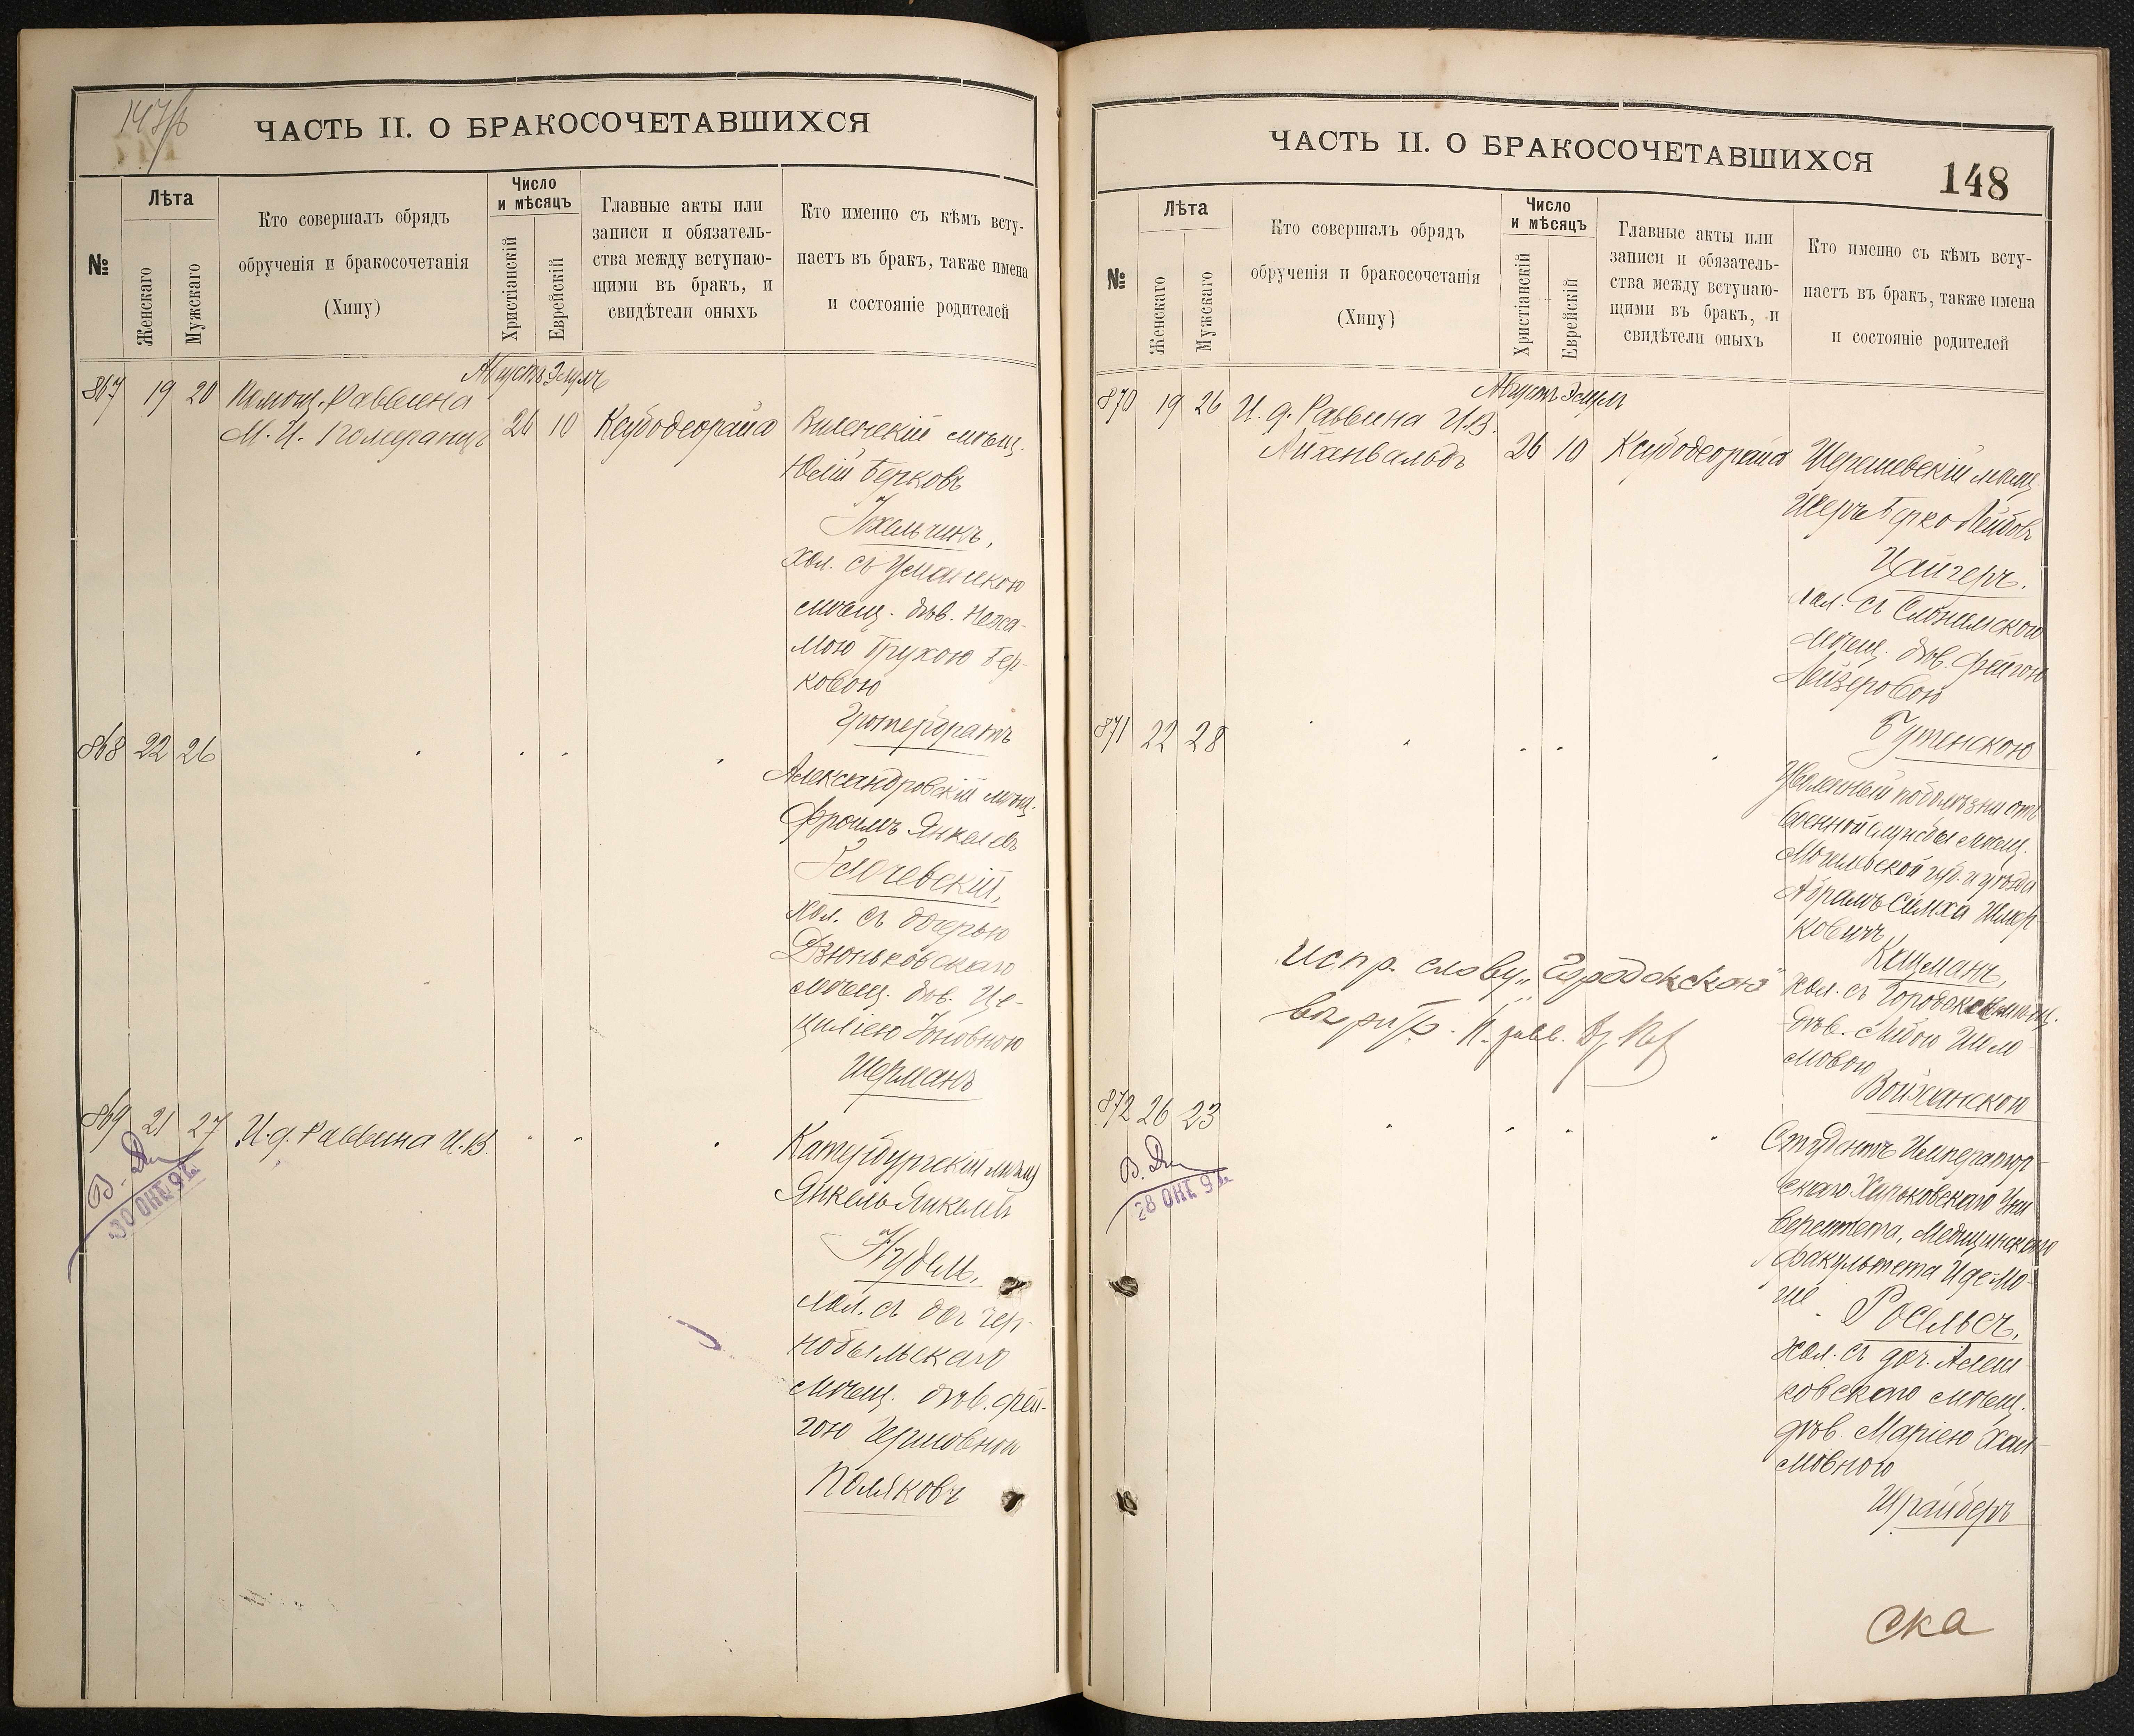 147/б
ЧАСТЬ II. О БРАКОСОЧЕТАВШИХСЯ
№
Лѣта
Женскаго
Мужскаго
Кто совершалъ обрядъ
обрученія и бракосочетанія
(Хипу)
Число
и мѣсяцъ
Христіанскій
Еврейскій
Главные акты или
записи и обязатель-
ства между вступаю-
щими въ бракъ, и
свидѣтели оныхъ
Кто именно съ кѣмъ всту-
паетъ въ бракъ, также имена
и состояніе родителей
Августъ Элулъ
867 19 20 Помощ. Раввина
М. И. Померанцъ 26 10 Ксубодеорайа Виленскій мѣщ.
Юлій Берковъ
хол. съ Уманскою
мѣщ. дѣв. Неха-
мою Брухою Бер-
ковою
868 22 26
Александровскій мѣщ.
Фроимъ Янкелевъ
хол. съ дочерью
Дзюньковскаго
мѣщ. дѣв. Це-
циліею
Шерманъ
869 21 27 И. д. Раввина И. В.
Катербургскій мѣщ
Янкель Янкелевъ
Нудель,
хол. съ доч Чер-
нобыльскаго
мѣщ. дѣв. Фей-
гою Гершовной
Поляковъ
30 ОКТ 91
ЧАСТЬ II. О БРАКОСОЧЕТАВШИХСЯ
148
№
Лѣта
Женскаго
Мужскаго
Кто совершалъ обрядъ
обрученія и бракосочетанія
(Хипу)
Число
и мѣсяцъ
Христіанскій
Еврейскій
Главные акты или
записи и обязатель-
ства между вступаю-
щими въ бракъ, и
свидѣтели оныхъ
Кто именно съ кѣмъ всту-
паетъ въ бракъ, также имена
и состояніе родителей
Августъ Элулъ
870 19 26 И. д. Раввина И. В.
Айхенвальдъ 26 10 Ксубодеорайа Шерешевскій мѣщ
Берко Лейбовъ
Цайгеръ.
хол. съ Слонимскою
мѣщ. дѣв. Фейгою
Лейзеровою
Бутенскою
871 22 28
Уволенный по болѣзни отъ
военной службы мѣщ.
губ. и уѣзда
Абрамъ Симха
ковичъ
Кацманъ,
хол. съ Городокск мѣщ.
дѣв. Либою Шло-
мовою
испр. слову „Городокскою"
вѣрить.
872 26 23
Студентъ Император-
скаго Харьковскаго Уни
верситета, Медицинскаго
факультета Иде-Мо-
ше
хол. съ доч. Алеш-
ковскаго мѣщ.
дѣв. Маріею Хаи-
мовною
Шрайберъ
28 ОКТ 91
ска